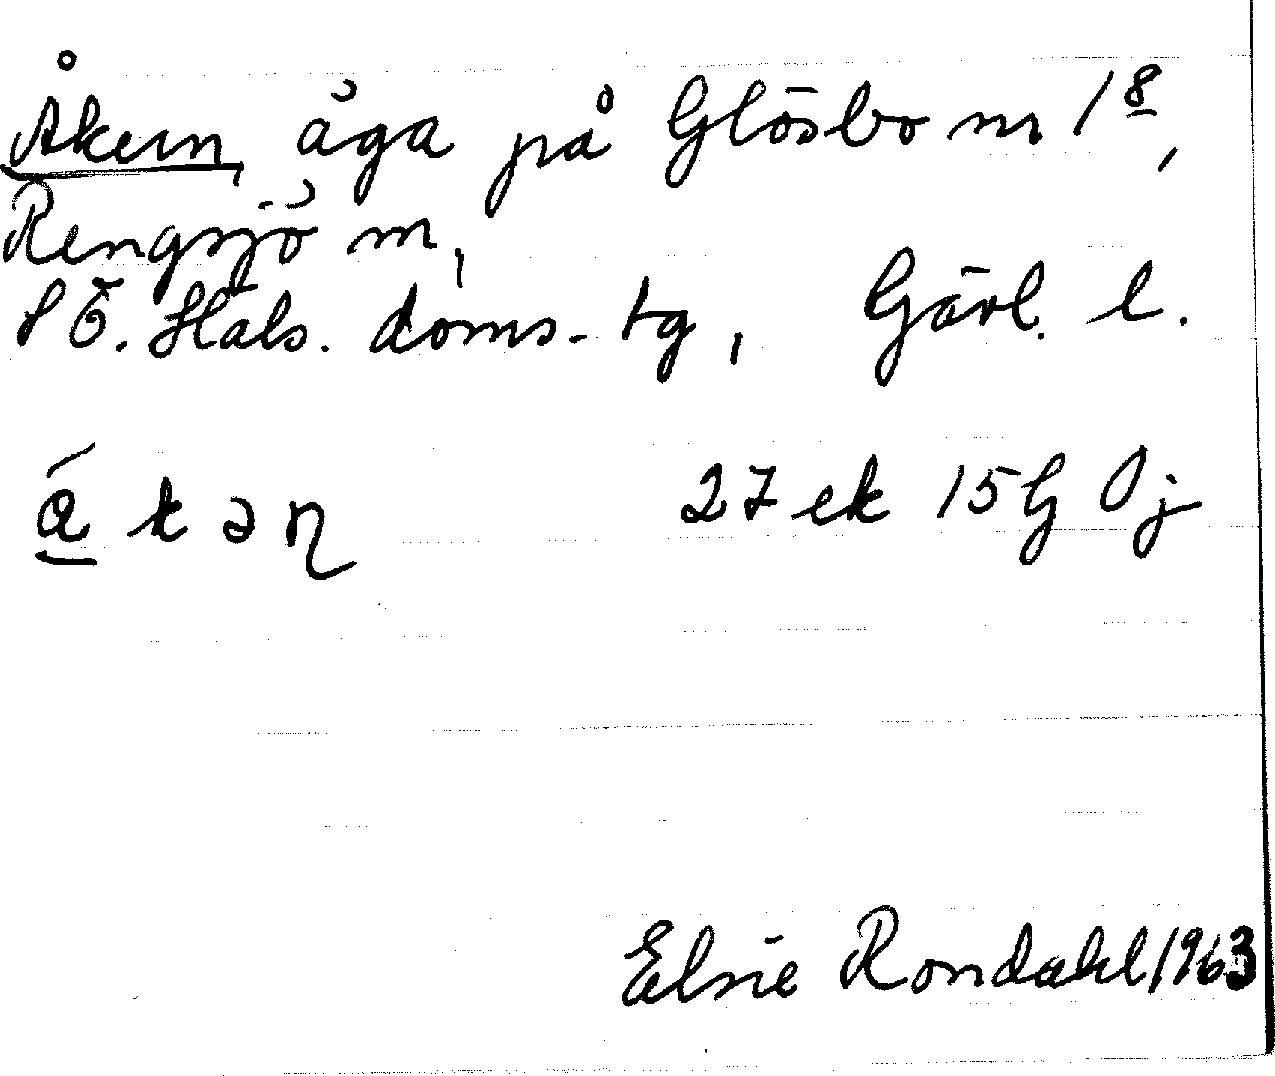 Åkern, åga på Glösbo nr 1⁸,
Rengsjö sn,
S Ö. Häls. doms. tg, Gävl. l.
á̱ k ə ɳ 27 ek 15 G Oj
Elsie Rondahl 1963